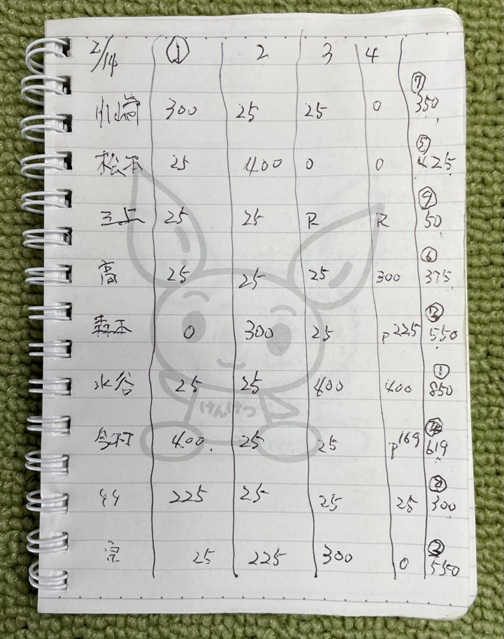 2/14 ① 2 3 4
川端 300 25 25 0 ⑦ 350
松本 25 400 0 0 ⑤ 425
三上 25 25 R R ⑨ 50
高 25 25 25 300 ⑥ 375
森本 0 300 25 p225 550
水谷 25 25 400 400 ① 850
今村 400. 25 25 p169 619
225 25 25 25 ⑧ 300
京 25 225 300 0 ② 550
けんけつ